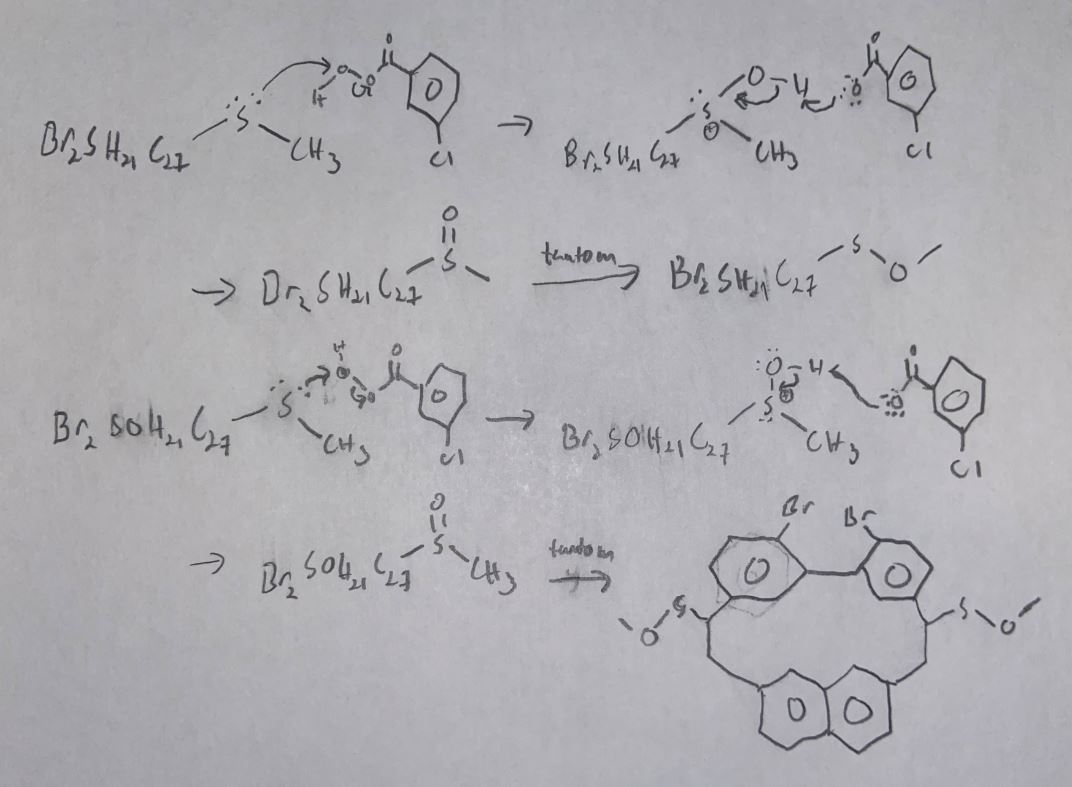 Br₂SH₂₁C₂₇ S CH₃ H O O O Cl → Br₂SH₂₁C₂₇ S ⊕ O H CH₃ O O Cl
→ Br₂SH₂₁C₂₇ S O → Br₂SH₂₁C₂₇ S O
Br₂SOH₂₁C₂₇ S CH₃ H O O O Cl → Br₂SOH₂₁C₂₇ S ⊕ O H CH₃ O O Cl
→ Br₂SOH₂₁C₂₇ S O CH₃ → Br Br S O S O